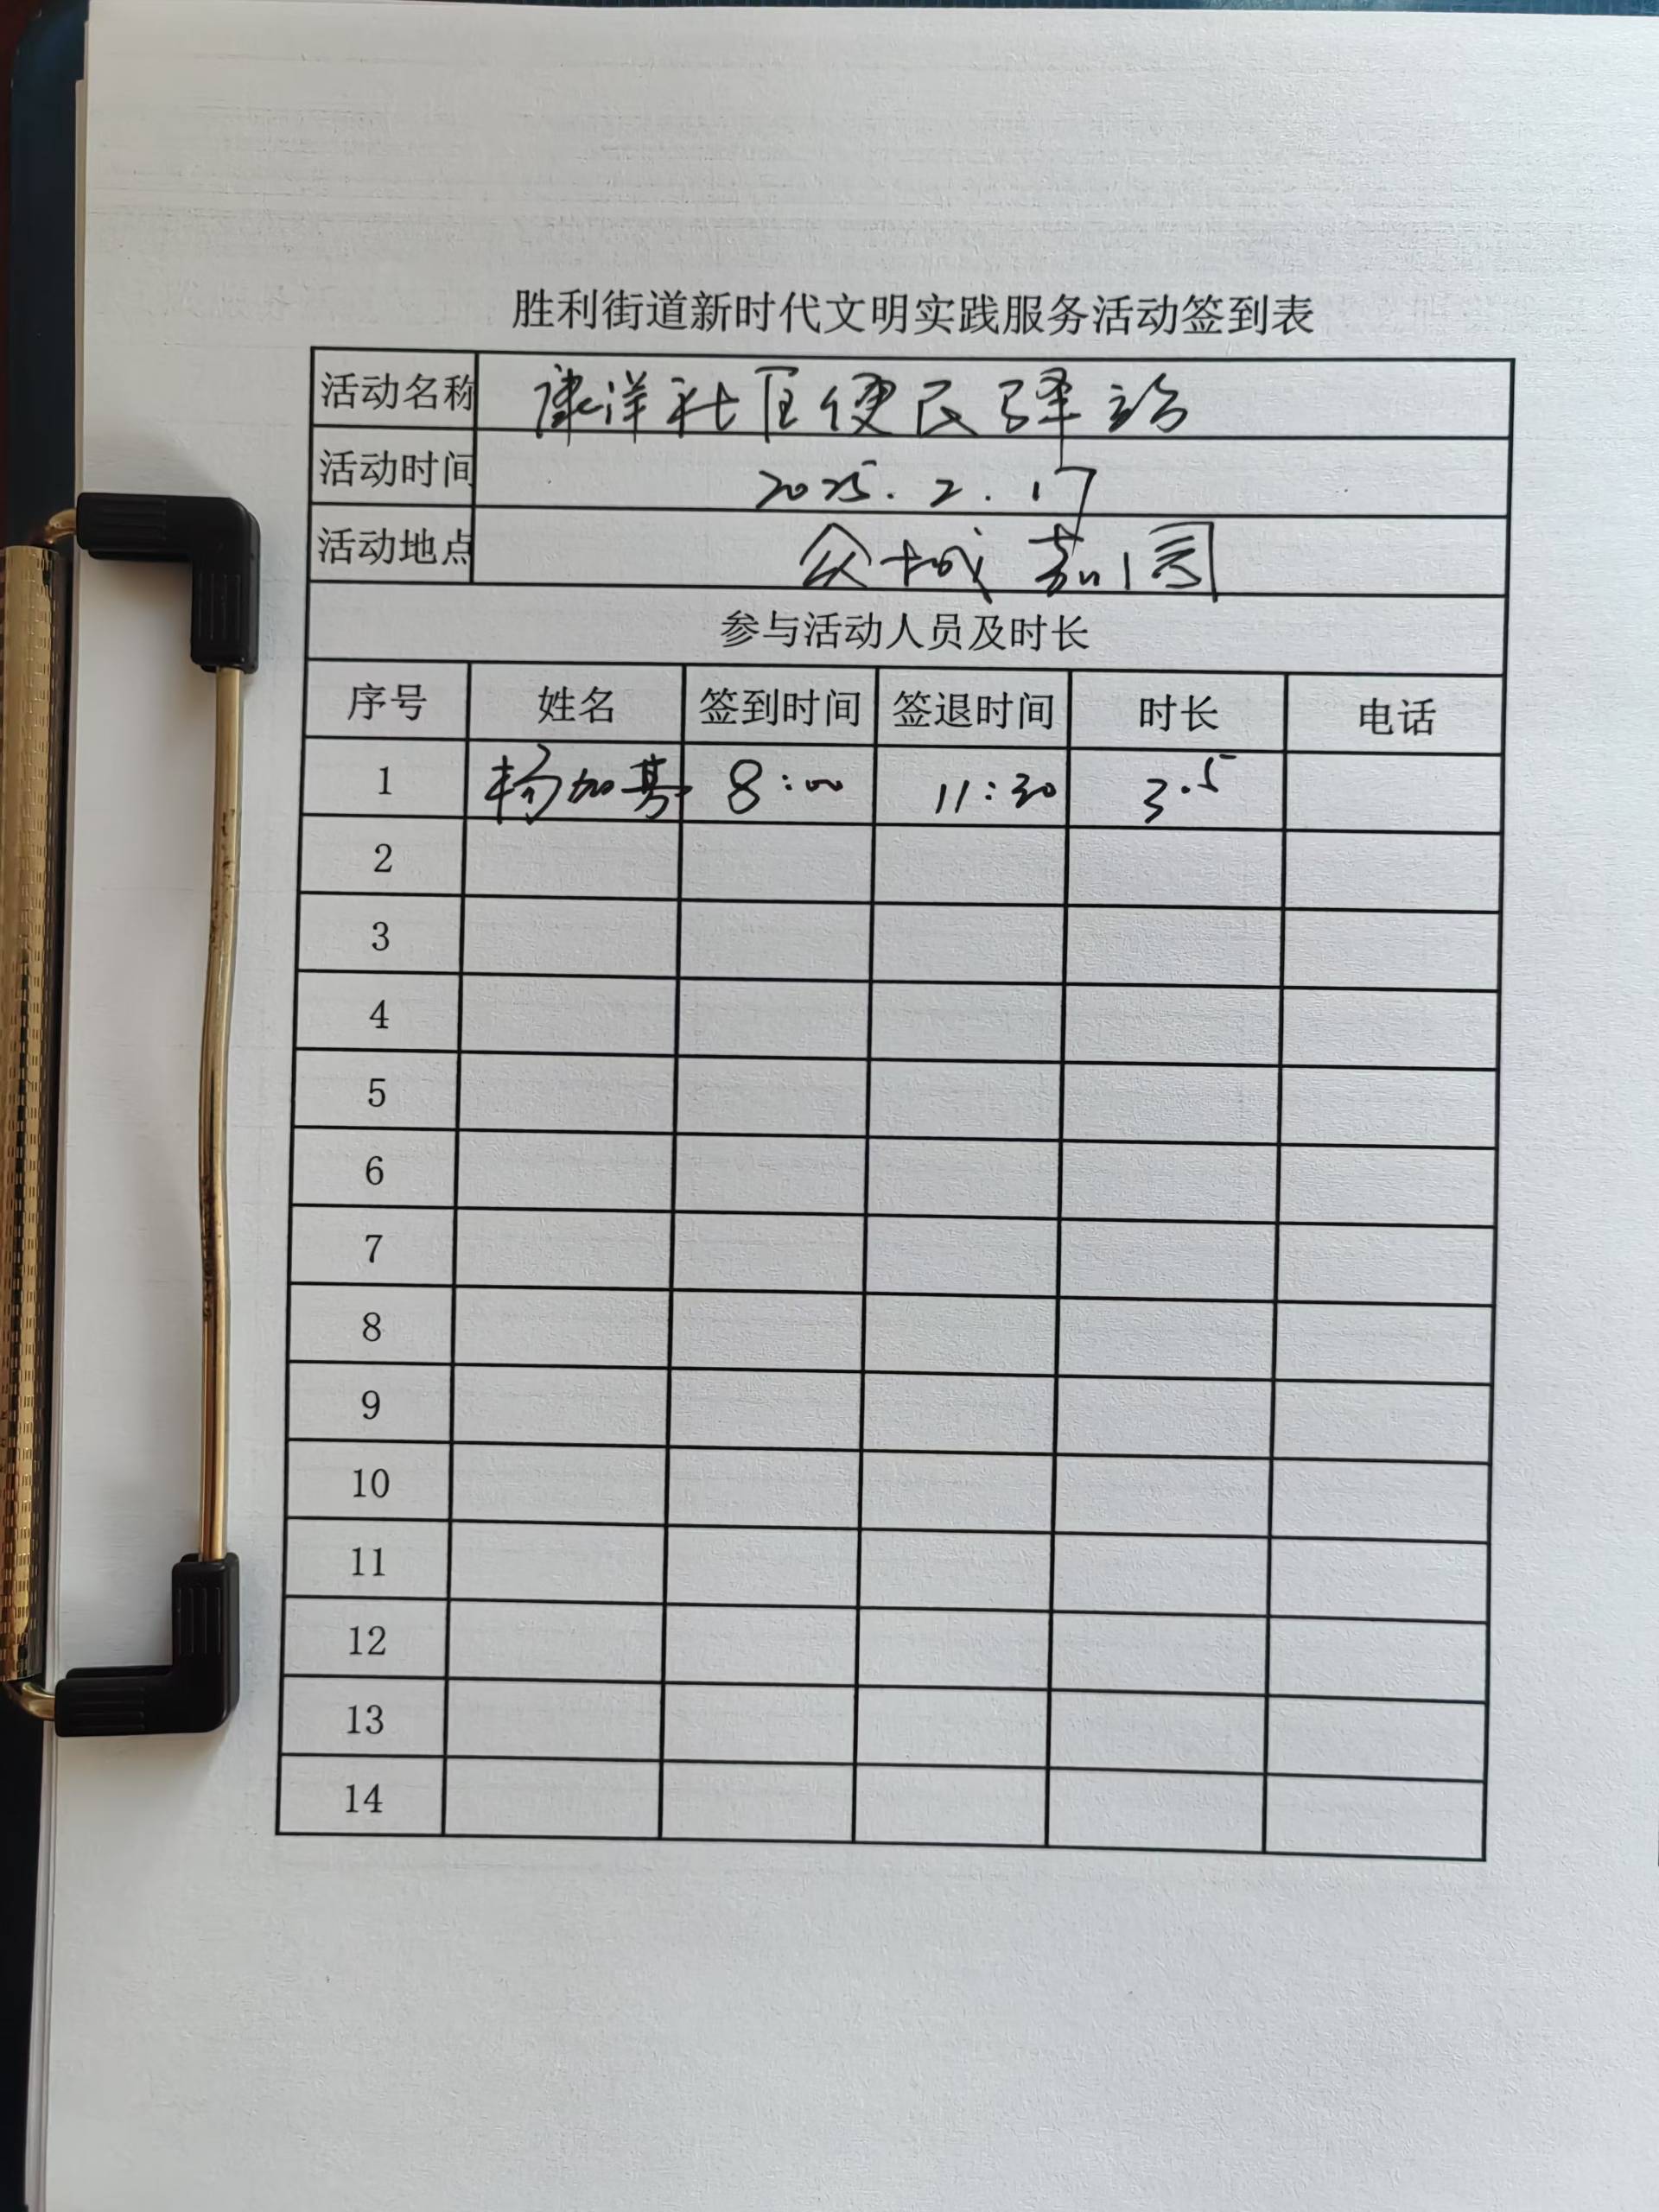 胜利街道新时代文明实践服务活动签到表
活动名称 康洋社区便民驿站
活动时间 2025.2.17
活动地点 众城嘉园
参与活动人员及时长
序号 姓名 签到时间 签退时间 时长 电话
1 杨加 8:00 11:30 3.5
2
3
4
5
6
7
8
9
10
11
12
13
14